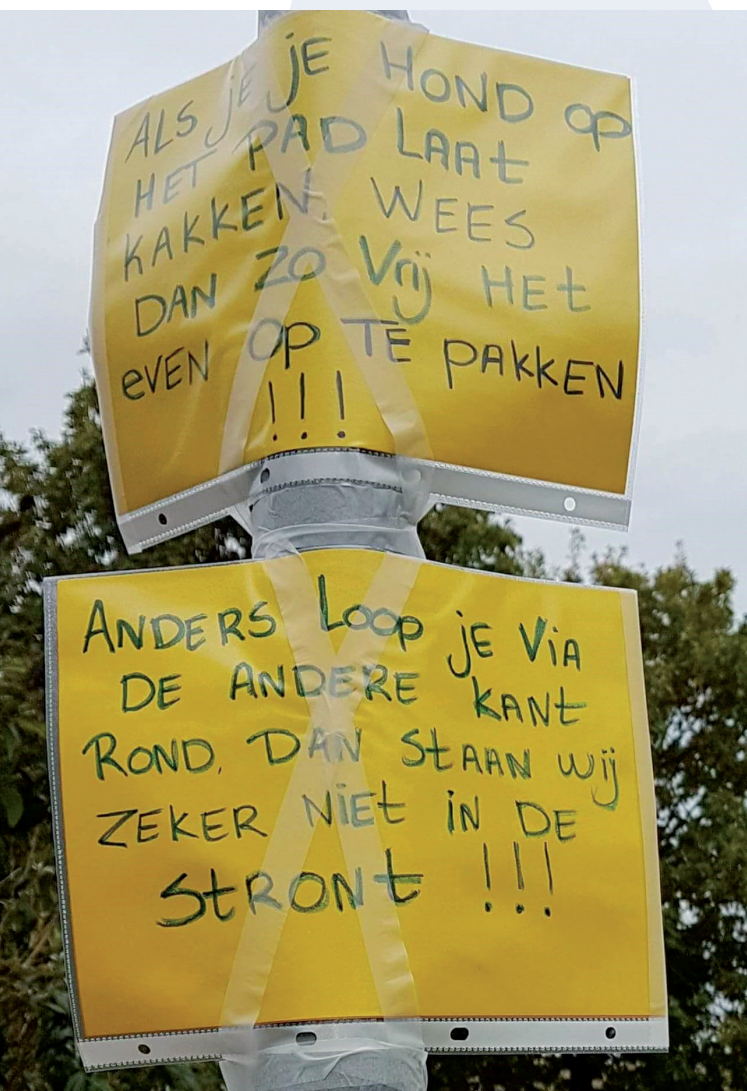 ALS JE JE HOND OP
HET PAD LAAT
KAKKEN, WEES
DAN ZO VRIJ HET
EVEN OP TE PAKKEN
!!!
ANDERS LOOP JE VIA
DE ANDERE KANT
ROND. DAN STAAN WIJ
ZEKER NIET IN DE
STRONT !!!